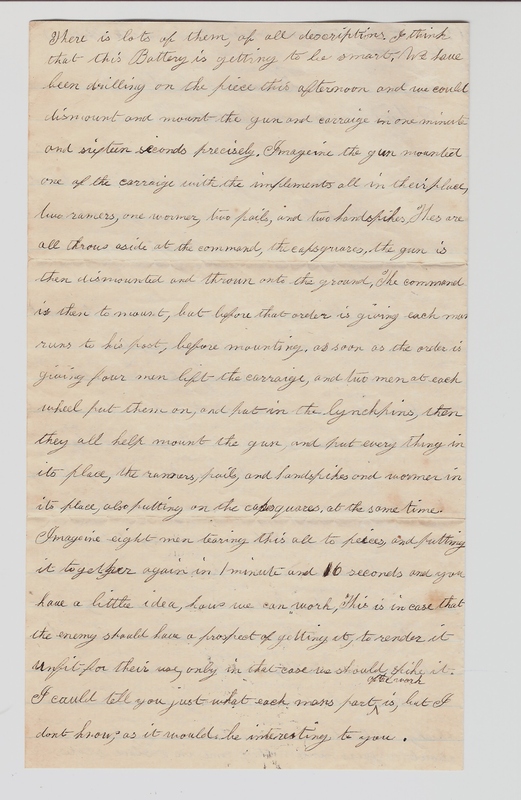 There is lots of them, of all descriptins. I think
that this Battery is getting to be smart, We have
been drilling on the piece this afternoon and we could
dismount and mount the gun and carraige in one minute
and sixteen seconds precisely. Imageine the gun mounted
one of the carraige with the implements all in their place,
two ramers, one wormer, two pails, and two handspikes, Thes are
all throus aside at the command, the capsquares, the gun is
then dismounted and thrown onto the ground, The command
is then to mount, but before that order is giving each man
runs to his post, before mounting. as soon as the order is
giving four men lift the carraige, and two men at each
wheel put them on, and put in the lynchpins, then
they all help mount the gun, and put every thing in
its place, the rammers, pails, and handspikes and wormer in
its place, also putting on the capsquares, at the same time.
Imageine eight men tearing this all to peices and putting
it together again in 1 minute and 16 seconds and you
have a little idea, hous we can work, This is in case that
the enemy should have a prospect of getting it, to render it
unfit for their use, only in that case we should spike it.
of the work
I could tell you just what each mans part is, but I
dont know, as it would be interesting to you.